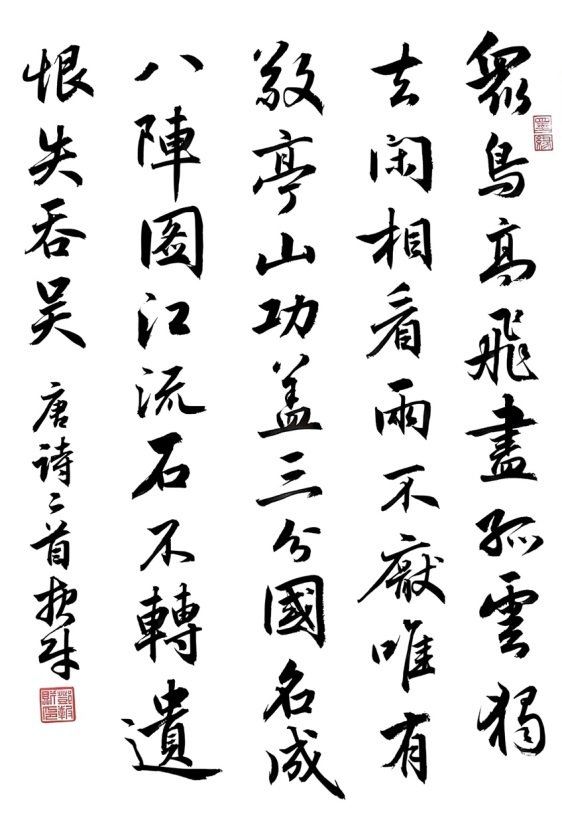 眾鳥高飛盡孤雲獨
去閑相看兩不厭唯有
敬亭山功蓋三分國名成
八陣圖江流石不轉遺
恨失吞吳
唐詩二首